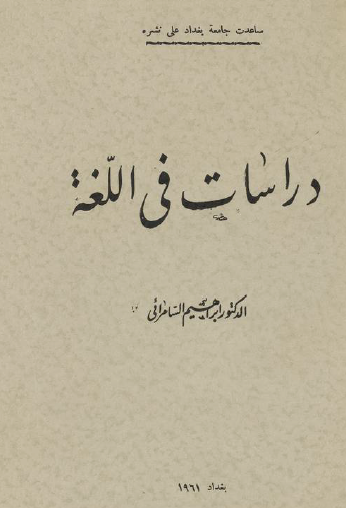 ساعدت جامعة بغداد على نشره
دراسات في اللّغة
الدكتور ابراهيم السامرائي
بغداد ١٩٦١